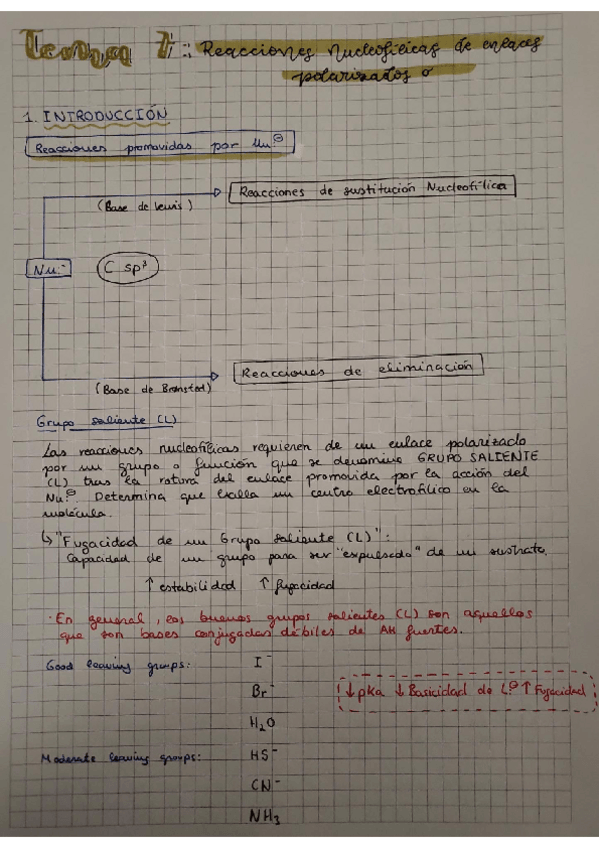 Tema 7: Reacciones nucleofílicas de enlaces
polarizados σ
1. INTRODUCCIÓN
Reacciones promovidas por Nu:⊖
Reacciones de sustitución Nucleofílica
(Base de Lewis)
Nu:⁻
C sp³
Reacciones de eliminación
(Base de Bronsted)
Grupo saliente (L)
Las reacciones nucleofílicas requieren de un enlace polarizado
por un grupo o función que se denomina GRUPO SALIENTE
(L) tras la rotura del enlace promovida por la acción del
Nu:⊖ Determina que exista un centro electrofílico en la
molécula.
↳ "Fugacidad de un Grupo saliente (L)":
Capacidad de un grupo para ser "expulsado" de un sustrato.
↑ estabilidad ↑ fugacidad
· En general, los buenos grupos salientes (L) son aquellos
que son bases conjugadas débiles de AH fuertes.
Good leaving groups: I⁻
Br⁻
↓ pKa ↓ Basicidad de L:⊖ ↑ Fugacidad
H₂O
Moderate leaving groups: HS⁻
CN⁻
NH₃